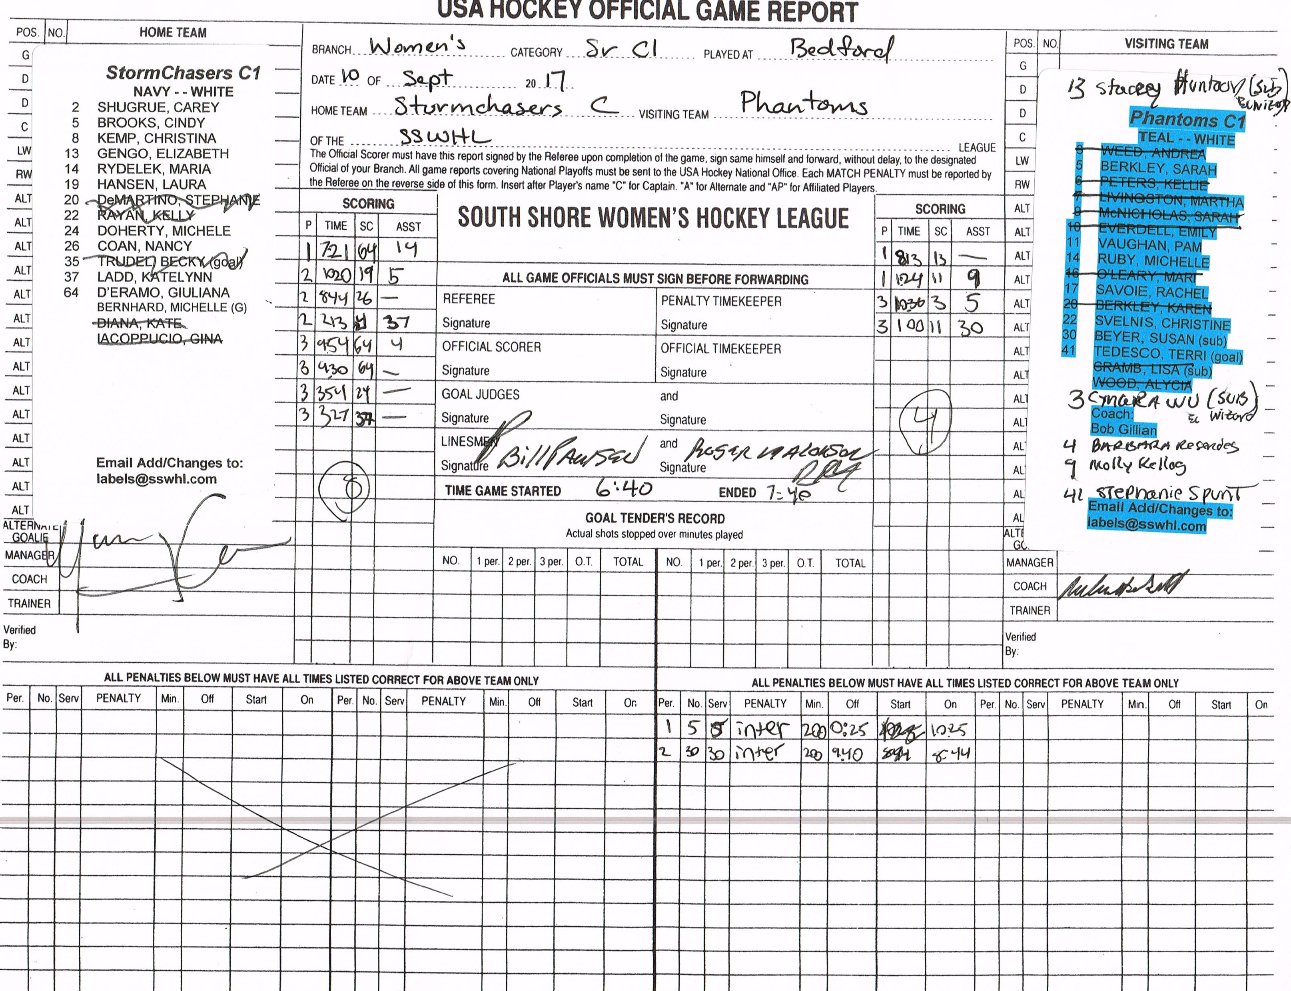 USA HOCKEY OFFICIAL GAME REPORT
POS. NO. HOME TEAM
G
D
D
C
LW
RW
ALT
ALT
ALT
ALT
ALT
ALT
ALT
ALT
ALT
ALT
ALT
ALT
ALT
ALT
StormChasers C1
NAVY - - WHITE
2 SHUGRUE, CAREY
5 BROOKS, CINDY
8 KEMP, CHRISTINA
13 GENGO, ELIZABETH
14 RYDELEK, MARIA
19 HANSEN, LAURA
20 DeMARTINO, STEPHANIE
22 RAYAN, KELLY
24 DOHERTY, MICHELE
26 COAN, NANCY
35 TRUDEO, BECKY (goal)
37 LADD, KATELYNN
64 D'ERAMO, GIULIANA
BERNHARD, MICHELLE (G)
DIANA, KATE
IACOPPUCIO, GINA
Email Add/Changes to:
labels@sswhl.com
ALTERNATE GOALIE
MANAGER
COACH
TRAINER
Verified
By:
BRANCH Women's CATEGORY Sr C1 PLAYED AT Bedford
DATE 10 OF Sept 2017
HOME TEAM Stormchasers C VISITING TEAM Phantoms
OF THE SSWHL LEAGUE
The Official Scorer must have this report signed by the Referee upon completion of the game, sign same himself and forward, without delay, to the designated
Official of your Branch. All game reports covering National Playoffs must be sent to the USA Hockey National Office. Each MATCH PENALTY must be reported by
the Referee on the reverse side of this form. Insert after Player's name "C" for Captain. "A" for Alternate and "AP" for Affiliated Players.
SCORING
P TIME SC ASST
1 721 64 14
2 1020 19 5
2 844 26 —
2 213 37
3 954 64 4
3 930 64 —
3 354 24 —
3 327 37 —
8
SOUTH SHORE WOMEN'S HOCKEY LEAGUE
ALL GAME OFFICIALS MUST SIGN BEFORE FORWARDING
REFEREE PENALTY TIMEKEEPER
Signature Signature
OFFICIAL SCORER OFFICIAL TIMEKEEPER
Signature Signature
GOAL JUDGES and
Signature Signature
LINESMEN and
Signature Bill Signature Roger
TIME GAME STARTED 6:40 ENDED 7:40
GOAL TENDER'S RECORD
Actual shots stopped over minutes played
NO. 1 per. 2 per. 3 per. O.T. TOTAL NO. 1 per. 2 per. 3 per. O.T. TOTAL
SCORING
P TIME SC ASST
1 813 13 —
1 124 11 9
3 1036 3 5
3 100 11 30
4
POS. NO. VISITING TEAM
G
D
D
C
LW
RW
ALT
ALT
ALT
ALT
ALT
ALT
ALT
ALT
ALT
ALT
AL
AL
AL
AL
13 Stacey (Sub)
Phantoms C1
TEAL - - WHITE
WEED, ANDREA
5 BERKLEY, SARAH
PETERS, KELLIE
LIVINGSTON, MARTHA
McNICHOLAS, SARAH
10 EVERDELL, EMILY
11 VAUGHAN, PAM
14 RUBY, MICHELLE
16 O'LEARY, MARI
17 SAVOIE, RACHEL
20 BERKLEY, KAREN
22 SVELNIS, CHRISTINE
30 BEYER, SUSAN (sub)
41 TEDESCO, TERRI (goal)
GRAMB, LISA (sub)
WOOD, ALYCIA
3 WU (SUB)
El Wizard
Coach:
Bob Gillian
4 BARBARA
9 Molly Kellog
Stephanie Spunt
Email Add/Changes to:
labels@sswhl.com
MANAGER
COACH
TRAINER
Verified
By:
ALL PENALTIES BELOW MUST HAVE ALL TIMES LISTED CORRECT FOR ABOVE TEAM ONLY
Per. No. Serv PENALTY Min. Off Start On Per. No. Serv PENALTY Min. Off Start On
ALL PENALTIES BELOW MUST HAVE ALL TIMES LISTED CORRECT FOR ABOVE TEAM ONLY
Per. No. Serv PENALTY Min. Off Start On Per. No. Serv PENALTY Min. Off Start On
1 5 5 inter 200 0:25 1025
2 30 30 inter 200 9:40 8:44